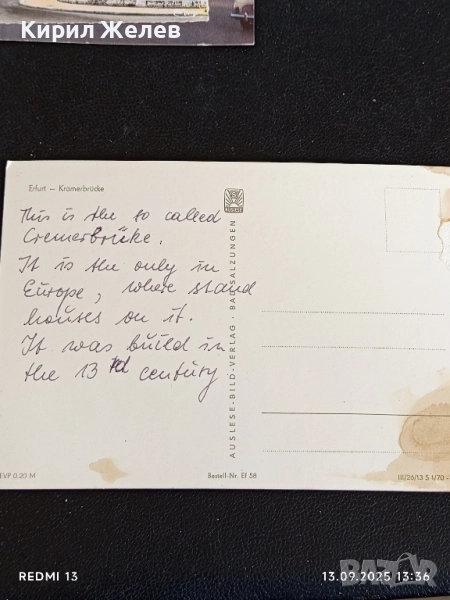 Кирил Желев
Erfurt – Krämerbrücke
This is the so called
Cremerbrüke.
It is the only in
Europe, where stand
houses on it.
It was build in
the 13 rd century
AUSLESE-BILD-VERLAG · BAD SALZUNGEN
EVP 0,20 M
Bestell-Nr. Ef 58
III/26/13 S 1/70
REDMI 13
13.09.2025 13:36
BAZAR